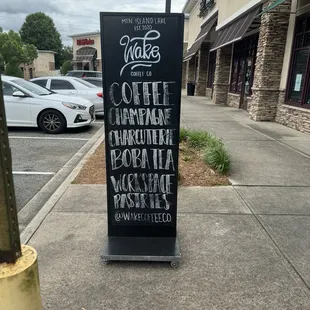 MTN ISLAND LAKE
EST 2020
Wake
COFFEE CO
COFFEE
CHAMPAGNE
CHARCUTERIE
BOBA TEA
WORKSPACE
PASTRIES
@WAKECOFFEECO